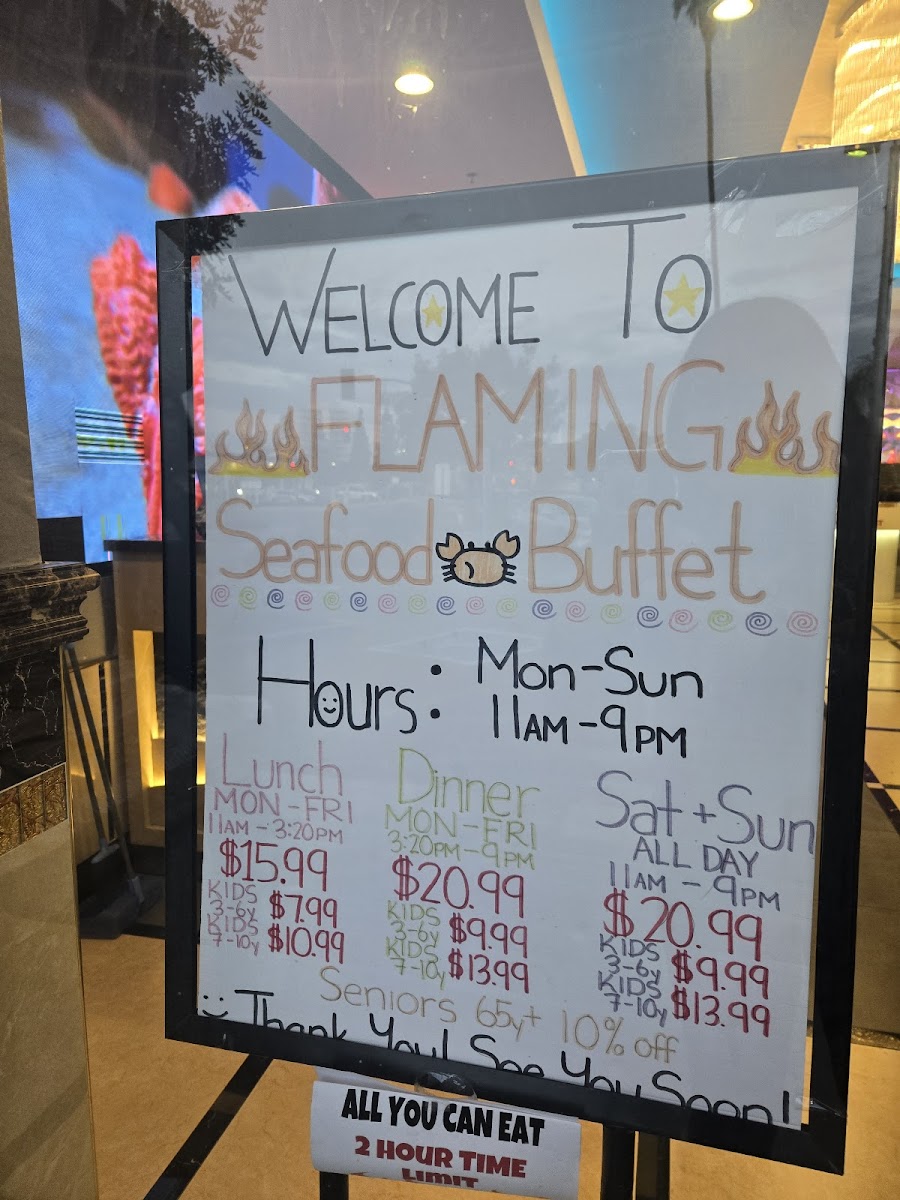 WELCOME TO
FLAMING
Seafood Buffet
Hours: Mon-Sun
11AM-9PM
Lunch
MON-FRI
11AM-3:20PM
$15.99
KIDS
3-6y $7.99
KIDS
7-10y $10.99
Dinner
MON-FRI
3:20PM-9PM
$20.99
KIDS
3-6y $9.99
KIDS
7-10y $13.99
Sat+Sun
ALL DAY
11AM-9PM
$20.99
KIDS
3-6y $9.99
KIDS
7-10y $13.99
Seniors 65y+ 10% off
Thank You! See You Soon!
ALL YOU CAN EAT
2 HOUR TIME
LIMIT